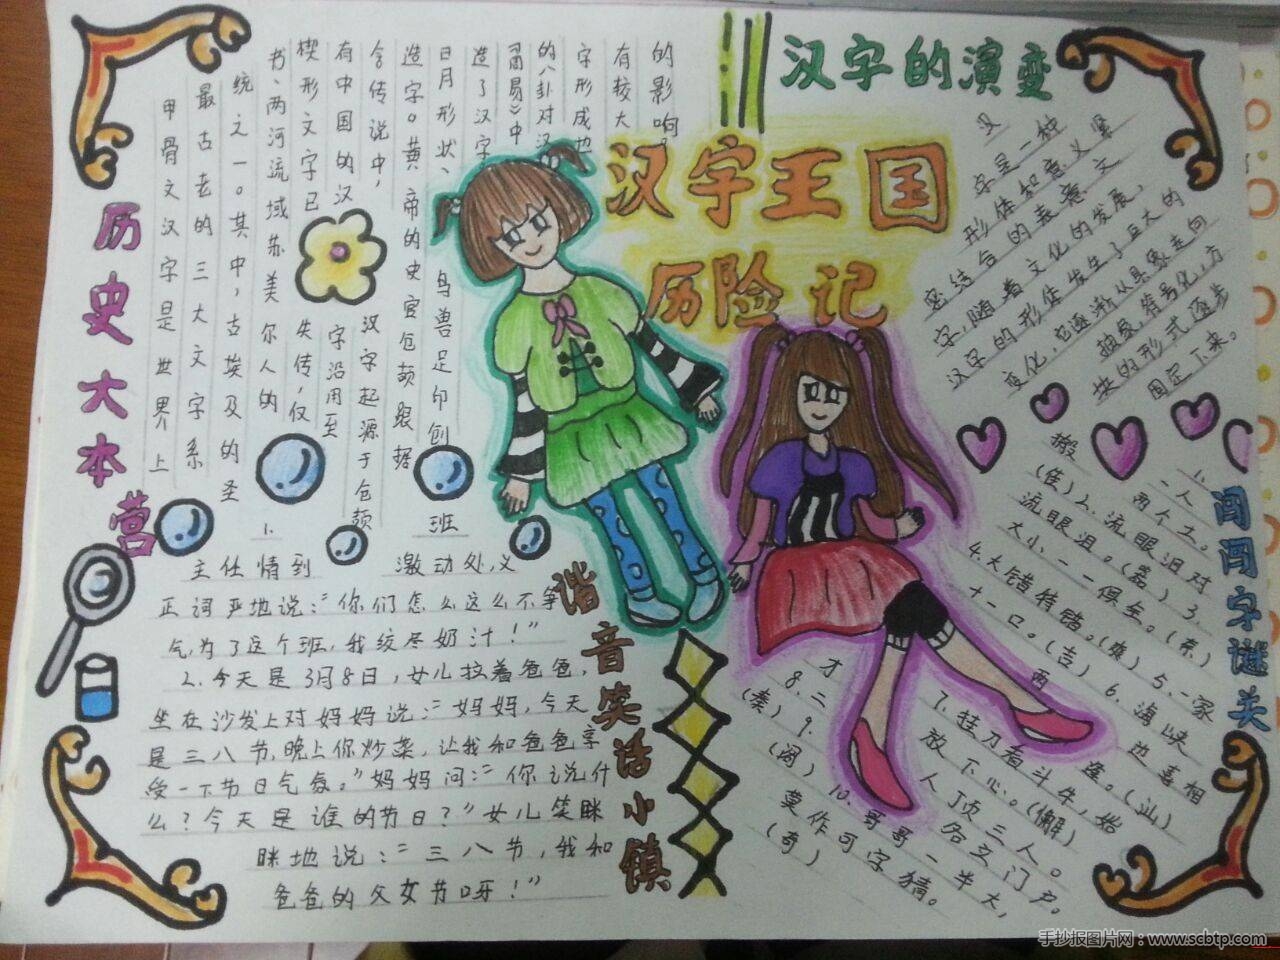 汉字王国
历险记
历史大本营
甲骨文汉字是世界上
最古老的三大文字系
统之一。其中,古埃及的圣
书、两河流域苏美尔人的
楔形文字已失传,仅
有中国的汉字沿用至
今传说中,汉字起源于仓颉
造字。黄帝的史官仓颉跟据
日月形状、鸟兽足印创
造了汉字
《周易》中
的八卦对汉
字形成也
有较大
的影响。
汉字的演变
汉
字是一种
形体和意义紧
密结合的表意文
字,随着文化的发展,
汉字的形体发生了巨大的
变化,它逐渐从具象走向
抽象,符号化,方
块的形式逐步
固定下来。
谐音笑话小镇
1.班
主任情到激动处,义
正词严地说:“你们怎么这么不争
气,为了这个班,我绞尽奶汁!”
2.今天是3月8日,女儿拉着爸爸,
坐在沙发上对妈妈说:“妈妈,今天
是三八节,晚上你炒菜,让我和爸爸享
受一下节日气氛。”妈妈问:“你说什
么?今天是谁的节日?”女儿笑眯
眯地说:“三八节,我和
爸爸的父女节呀!”
闯闯字谜关
1.
一人搬
两个土。
(佳)2.流眼泪对
流眼泪。(磊)3.
大小一一俱全。(奈)
4.大错特错。(爽)5.一家
十一口。(吉)6.海峡
两边喜相
逢。(汕)
7.挂刀看斗牛,始
才放下心。(懈)
8.二人顶三人。
(奏)9.各立门户。
(阔)10.哥哥一半大,
莫作可字猜。
(奇)
手抄报图片网:www.scbtp.com